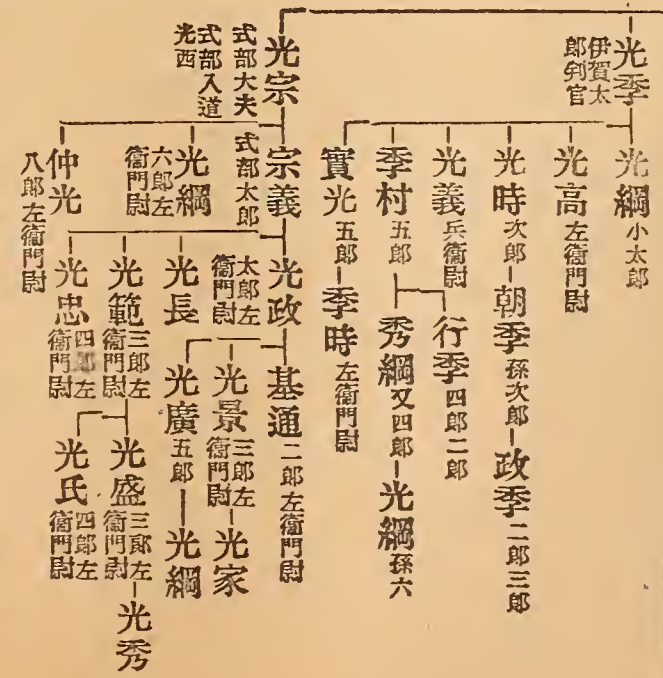 光季 伊賀太郎判官
光綱 小太郎
光高 左衞門尉
光時 次郎
朝季 孫次郎
政季 二郎三郎
光義 兵衞尉
季村 五郎
行季 四郎二郎
秀綱 又四郎
光綱 孫六
實光 五郎
季時 左衞門尉
光宗 式部大夫 式部入道 光西
宗義 式部太郎
光政 太郎左衞門尉
基通 二郎左衞門尉
光景 三郎左衞門尉
光家
光廣 五郎
光綱
光長
光範 三郎左衞門尉
光盛 三郎左衞門尉
光秀
光氏 四郎左衞門尉
光忠 四郎左衞門尉
光綱 六郎左衞門尉
仲光 八郎左衞門尉